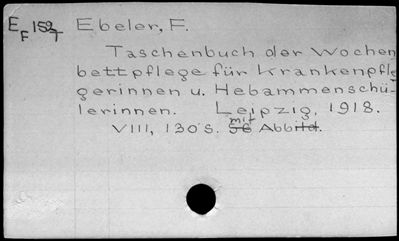 E F 152/T Ebeler, F.
Taschenbuch der Wochen
bettpflege für Krankenpfle
gerinnen u. Hebammenschü-
lerinnen. Leipzig, 1918.
VIII, 130 S. mit 58 Abbild.